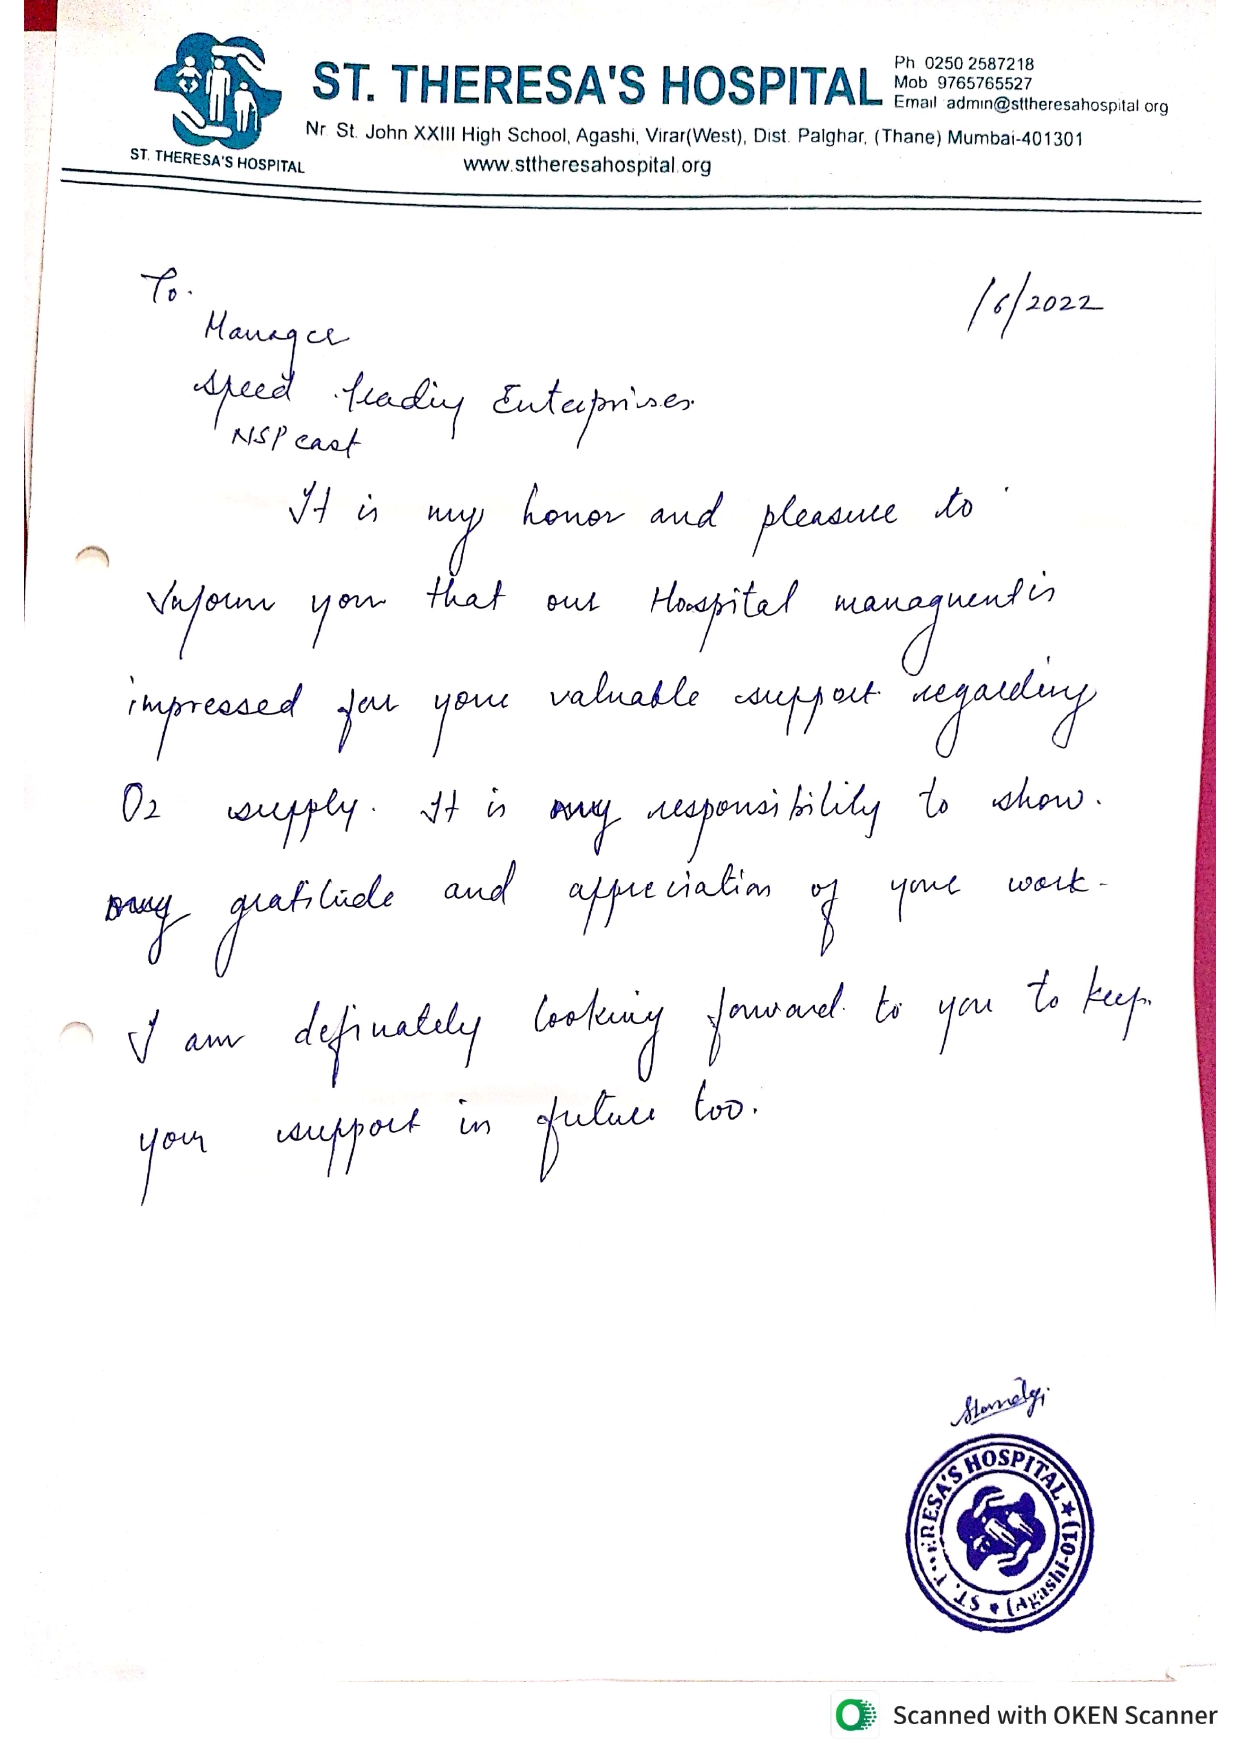 ST. THERESA'S HOSPITAL
Ph 0250 2587218
Mob 9765765527
Email admin@sttheresahospital org
Nr St. John XXIII High School, Agashi, Virar(West), Dist. Palghar, (Thane) Mumbai-401301
ST. THERESA'S HOSPITAL
www.sttheresahospital.org
To.
/6/2022
Manager
Speed Trading Enterprises
NSP east
It is my honor and pleasure to
inform you that our Hospital management is
impressed for your valuable support regarding
O2 supply. It is my responsibility to show.
my gratitude and appreciation of your work.
I am definately looking forward to you to keep
your support in future too.
ST. THERESA'S HOSPITAL ★ (Agashi-01) ★
Scanned with OKEN Scanner